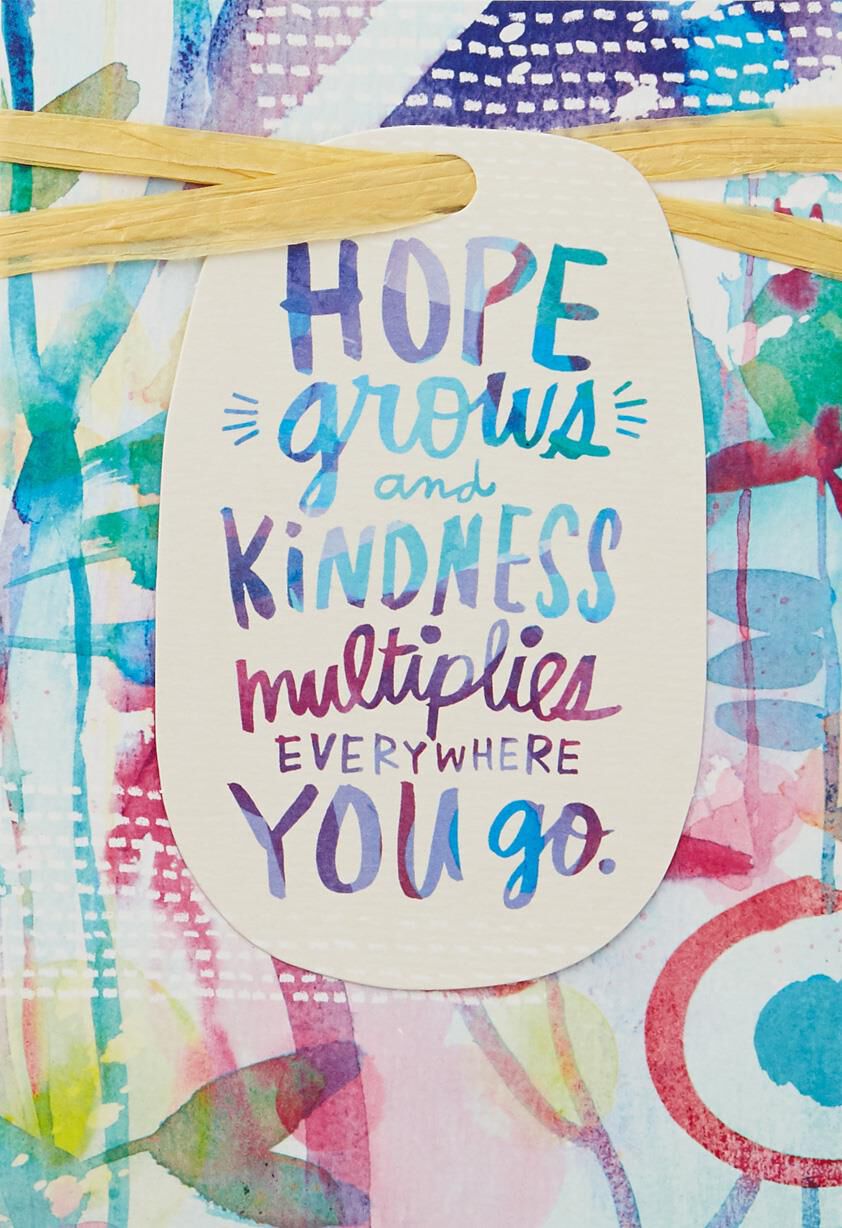 HOPE
grows
and
KiNDNESS
multiplies
EVERYWHERE
YOU go.